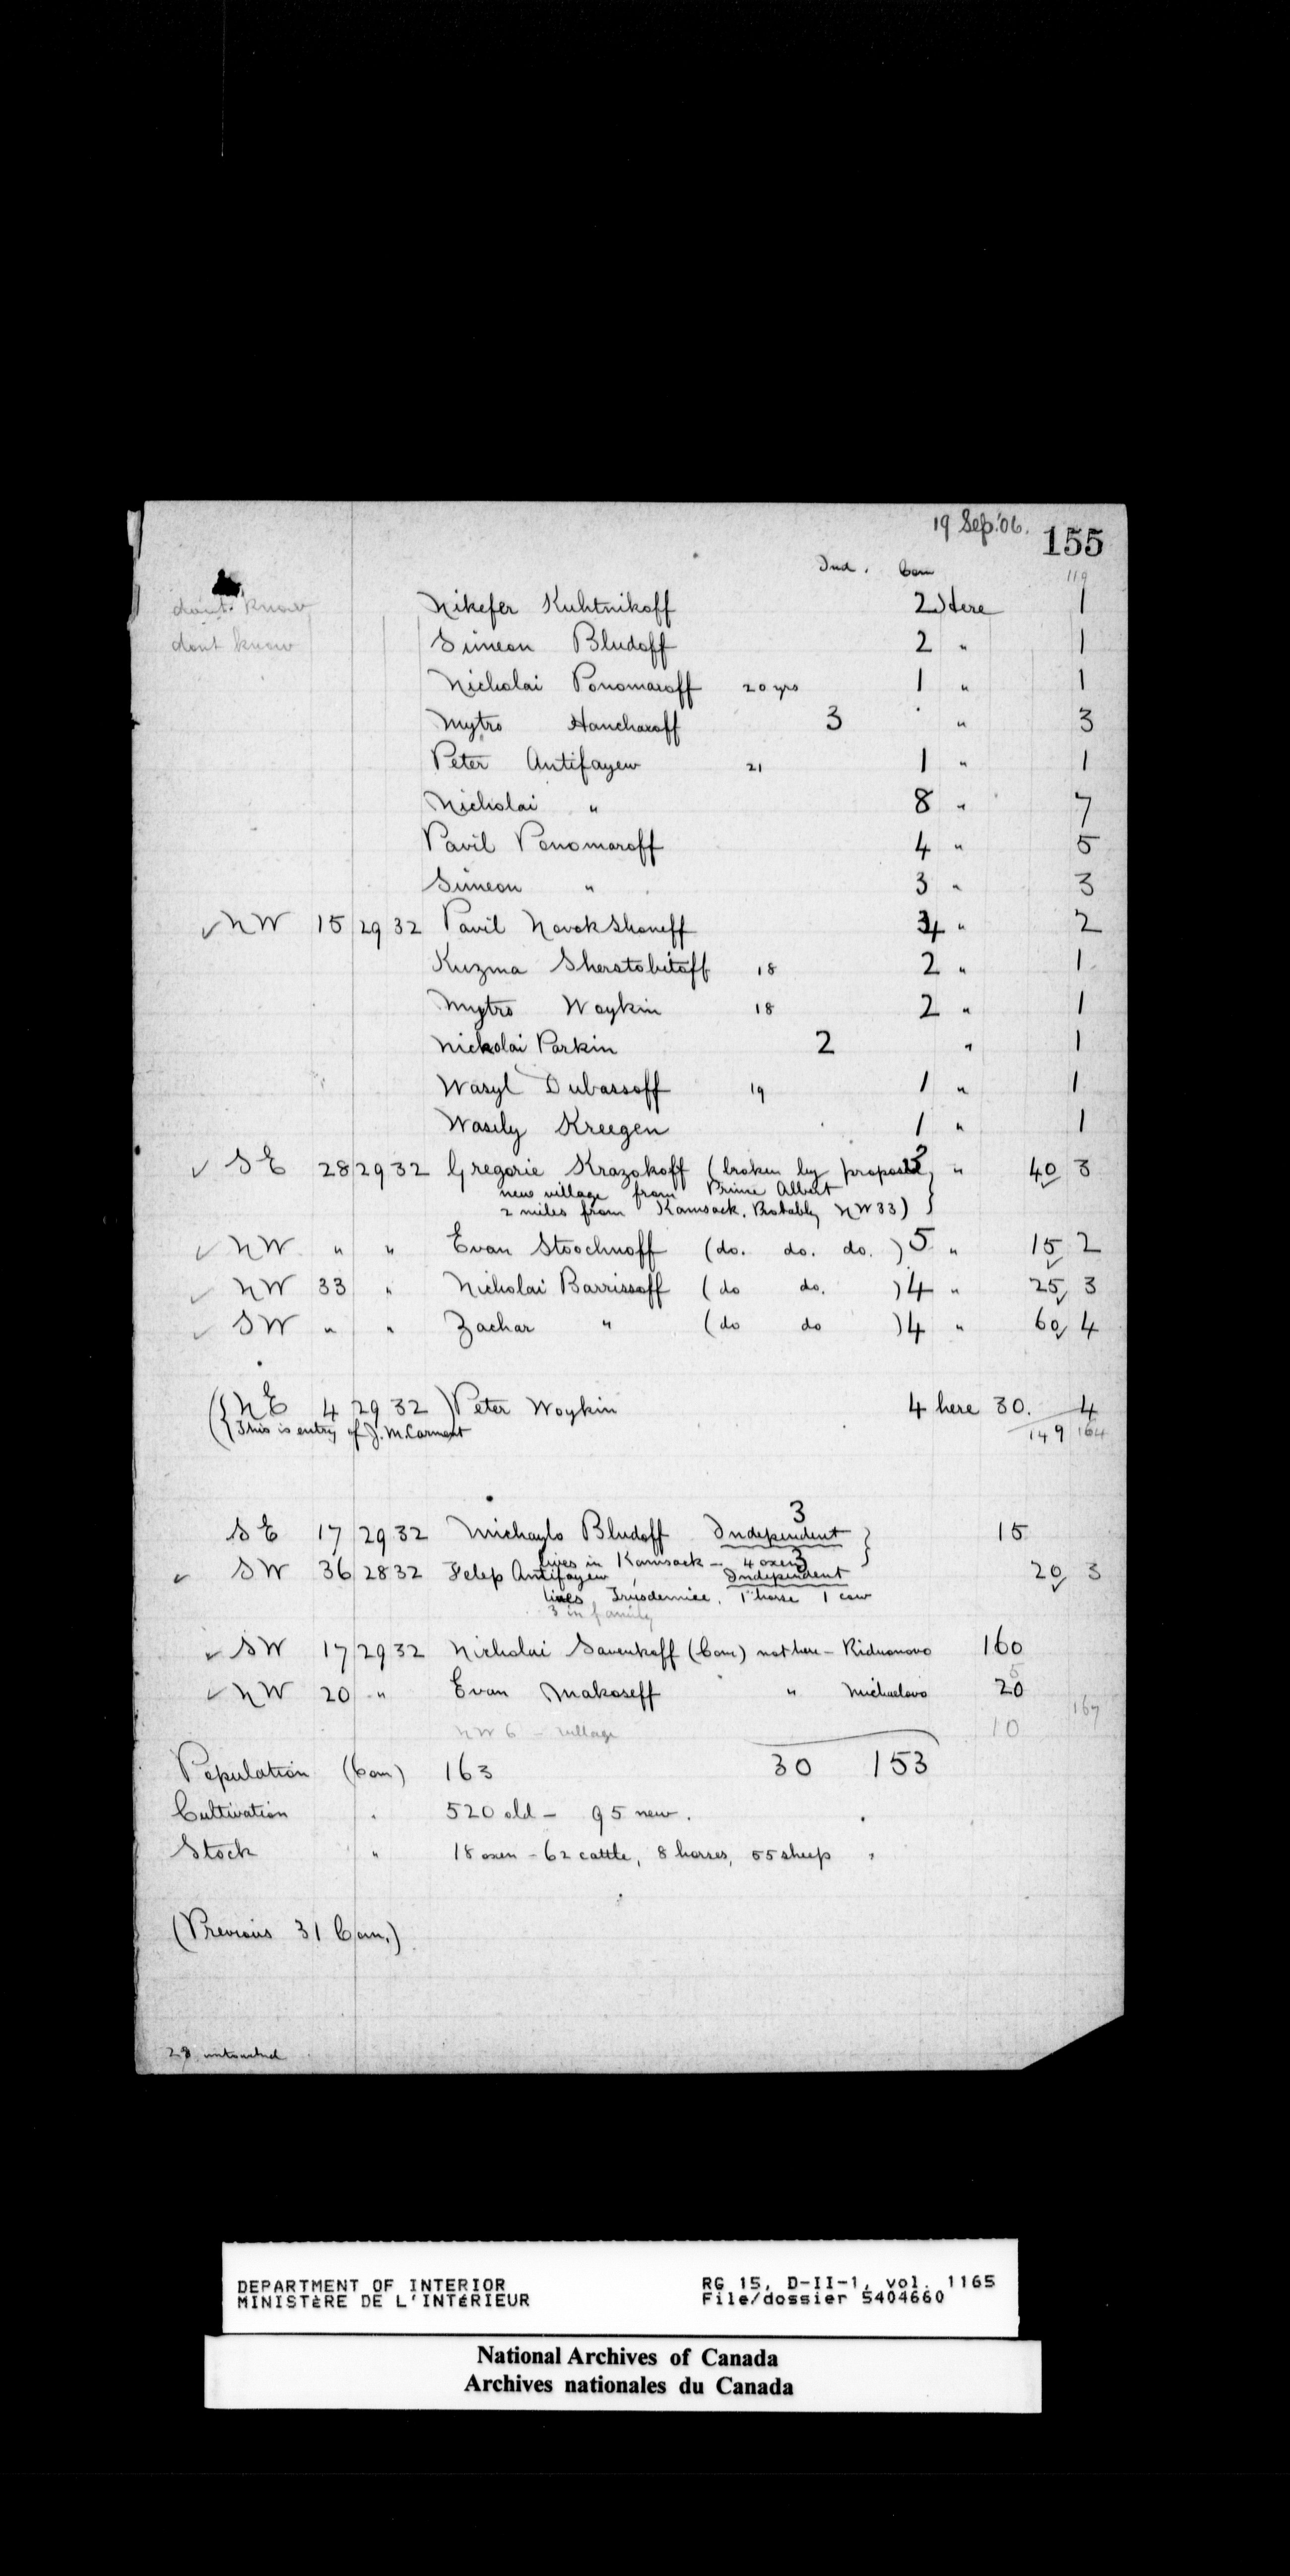 19 Sep. '06.
155
Ind. Com
119
don't know Nikefer Kuhtnikoff 2 Here 1
dont know Simeon Bludoff 2 " 1
Nicholai Ponomaroff 20 yrs 1 " 1
Mytro Hancharoff 3 " 3
Peter Antifayew 21 1 " 1
Nicholai " 8 " 7
Pavil Ponomaroff 4 " 5
Simeon " 3 " 3
✓ NW 15 29 32 Pavil Novokshoneff 4 " 2
Kuzma Sherstobitoff 18 2 " 1
Mytro Woykin 18 2 " 1
Nickolai Parkin 2 " 1
Wasyl Dubassoff 19 1 " 1
Wasily Kreegen 1 " 1
✓ SE 28 29 32 Gregorie Krazokoff (broken by proposed 3 " 40 ✓ 3
new village from Prince Albert
2 miles from Kamsack. Probably NW 33)
✓ NW " " Evan Stoochnoff (do. do. do. ) 5 " 15 ✓ 2
✓ NW 33 " Nicholai Barrissoff (do do. ) 4 " 25 ✓ 3
✓ SW " " Zachar " (do do ) 4 " 60 ✓ 4
({ NE 4 29 32 ) Peter Woykin 4 here 30. 4
({ This is entry of J. McCarment
149 164
3
SE 17 29 32 Michaylo Bludoff Independent } 15
lives in Kamsack - 4 oxen 3
✓ SW 36 28 32 Felep Antifayew Independent 20 ✓ 3
lives 1 horse 1 cow
3 in family
✓ SW 17 29 32 Nicholai Savenkoff (Com) not here - Riduonovo 160
✓ NW 20 " Evan Makoseff " Michaelovo 20
5
167
NW 6 - village 10
Population (Com) 163 30 153
Cultivation " 520 old - 95 new.
Stock " 18 oxen - 62 cattle, 8 horses, 55 sheep
(Previous 31 Com.)
28 untouched
DEPARTMENT OF INTERIOR RG 15, D-II-1, vol. 1165
MINISTÈRE DE L'INTÉRIEUR File/dossier 5404660
National Archives of Canada
Archives nationales du Canada